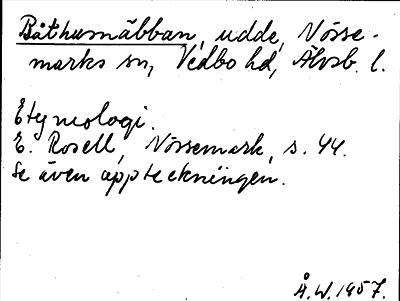 Båthusnäbban, udde, Nösse-
marks sn, Vedbo hd, Älvsb. l.
Etymologi.
E. Rosell, Nössemark, s. 44.
Se även uppteckningen.
Å.W. 1957.